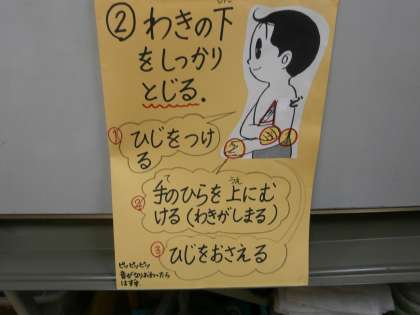 ② わきの下
をしっかり
とじる.
① ひじをつけ
る
② 手のひらを上にむ
ける(わきがしまる)
③ ひじをおさえる
ピッピッピッ
音がなりおわったら
はずす.